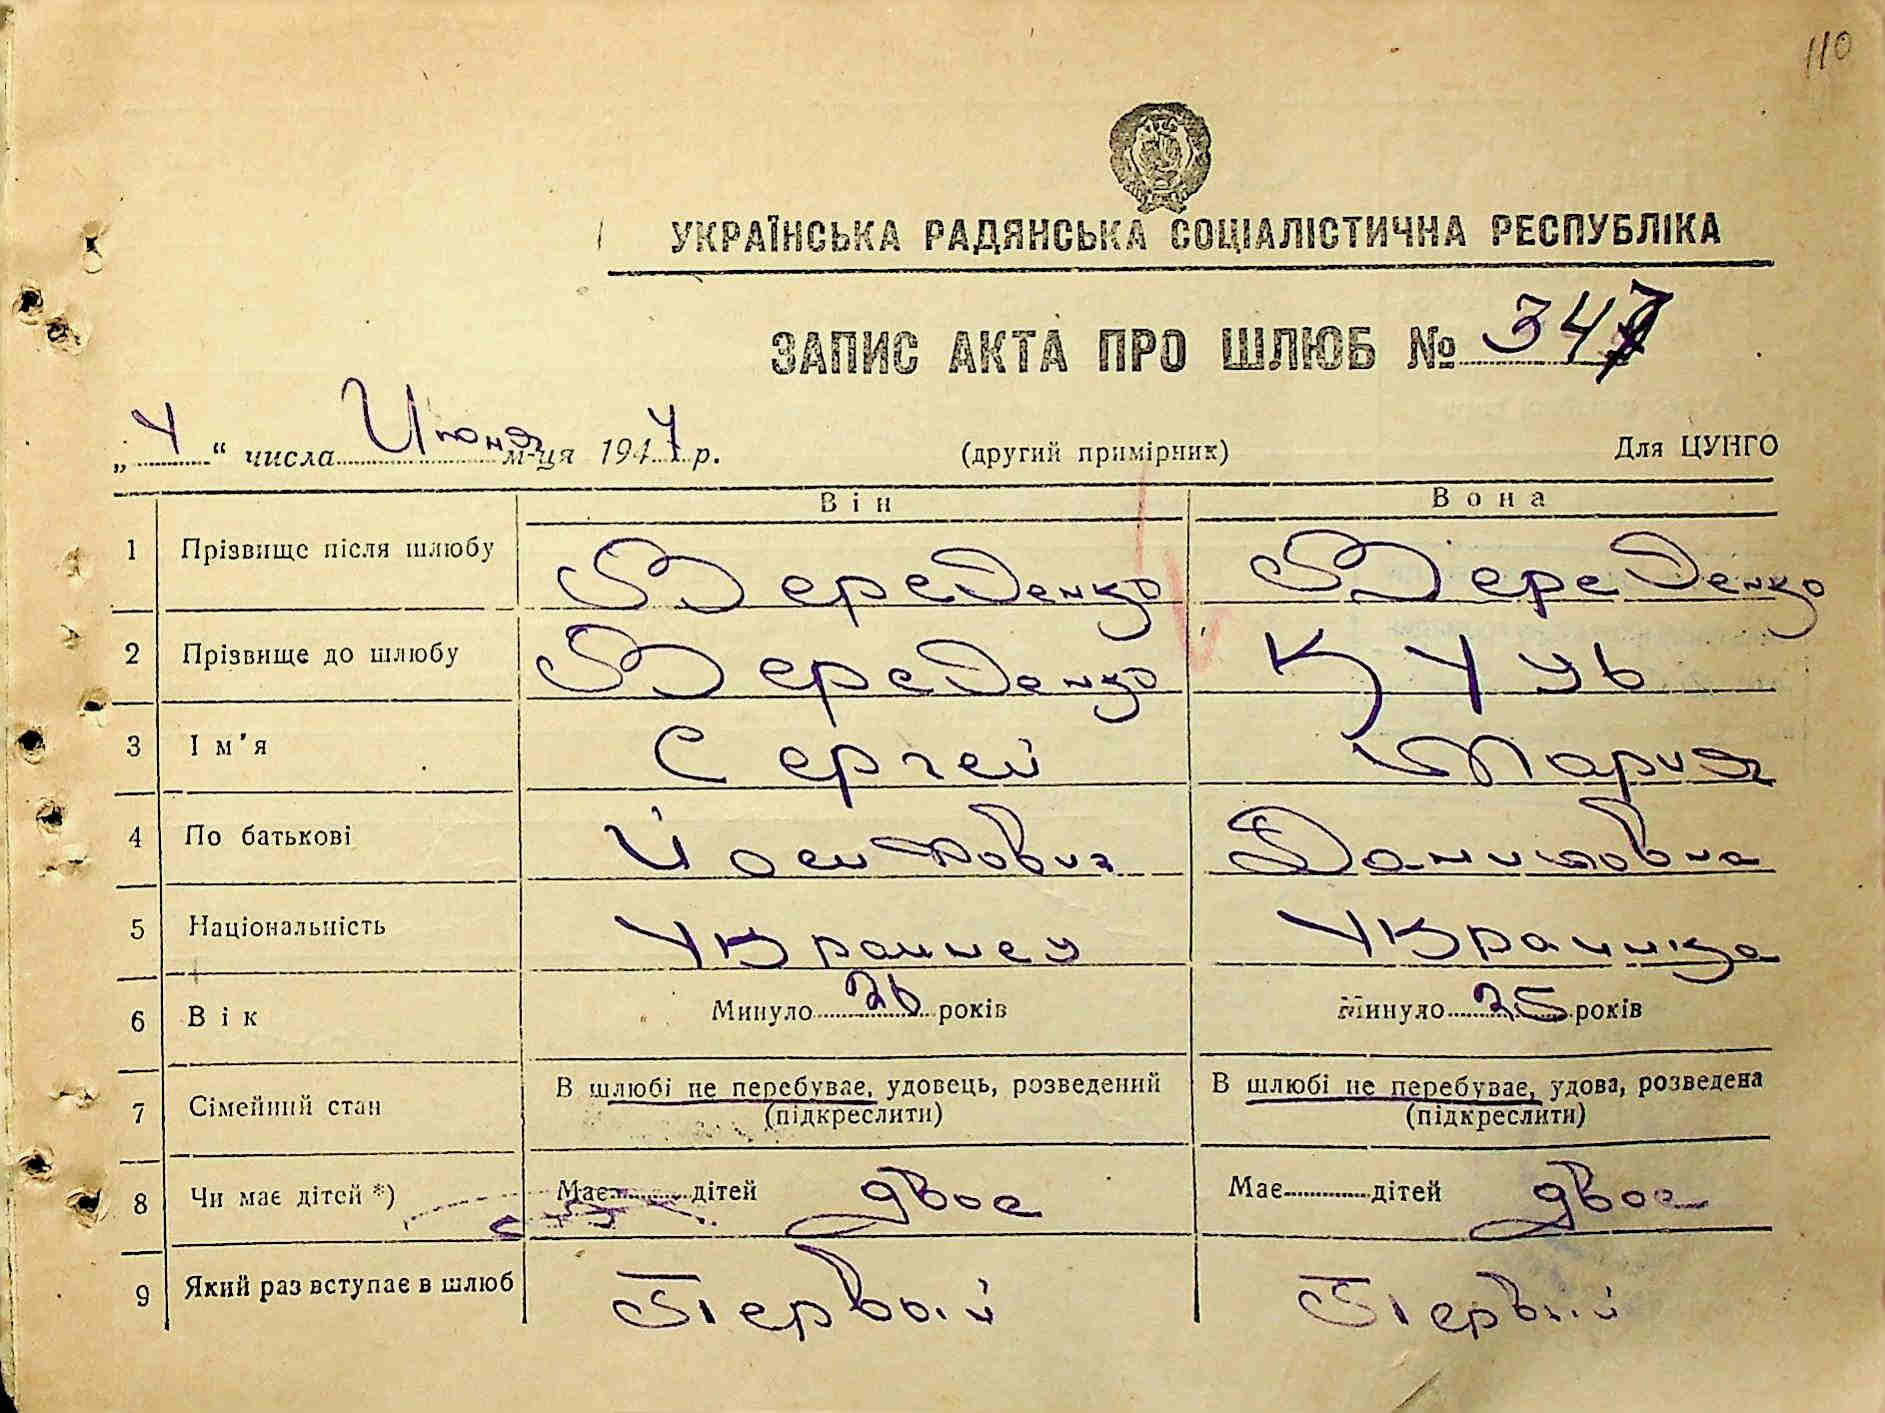 110
УКРАЇНСЬКА РАДЯНСЬКА СОЦІАЛІСТИЧНА РЕСПУБЛІКА
ЗАПИС АКТА ПРО ШЛЮБ № 347
„4“ числа Июня м-ця 1947 р. (другий примірник) Для ЦУНГО
Він Вона
1 Прізвище після шлюбу Вереденко Вереденко
2 Прізвище до шлюбу Вереденко Куць
3 Ім'я Сергей Мария
4 По батькові Йосипович Даниловна
5 Національність Украинец Украинка
6 Вік Минуло 26 років Минуло 25 років
7 Сімейний стан В шлюбі не перебуває, удовець, розведений В шлюбі не перебуває, удова, розведена
(підкреслити) (підкреслити)
8 Чи має дітей *) Має дітей двое Має дітей двое
9 Який раз вступає в шлюб Первый Первый